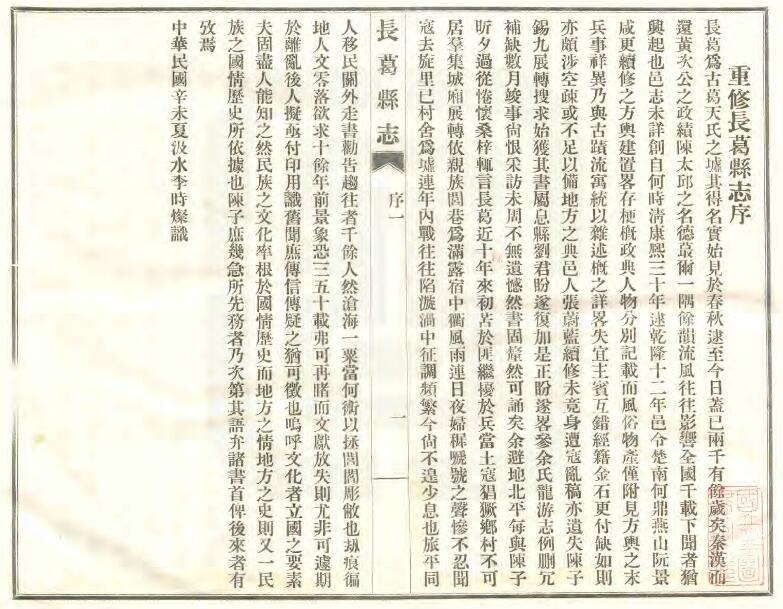 重修長葛縣志序
長葛爲古葛天氏之墟其得名實始見於春秋逮至今日蓋已兩千有餘歲矣秦漢而
還黃次公之政績陳太邱之名德蕞爾一隅餘韻流風往往影響全國千載下聞者猶
興起也邑志未詳創自何時清康熙三十年逮乾隆十二年邑令楚南何鼎燕山阮景
咸更續修之方輿建置畧存梗概政典人物分別記載而風俗物產僅附見方輿之末
兵事祥異乃與古蹟流寓統以雜述概之詳畧失宜主賓互錯經籍金石更付缺如則
亦頗涉空疎或不足以備地方之典邑人張蔚藍續修未竟身遭寇亂稿亦遺失陳子
錫九展轉搜求始獲其書屬息縣劉君盼遂復加是正盼遂畧參余氏龍游志例刪冗
補缺數月竣事尙恨采訪未周不無遺憾然書固犛然可誦矣余避地北平每與陳子
昕夕過從惓懷桑梓輒言長葛近十年來初苦於匪繼擾於兵當土寇猖獗鄉村不可
居羣集城廂展轉依親族閭巷爲滿露宿中衢風雨連日夜婦穉號號之聲慘不忍聞
寇去旋里已村舍爲墟連年內戰往往陷漩渦中征調頻繁今尙不遑少息也旅平同
長葛縣志
序一
一
人移民關外走書勸告趨往者千餘人然滄海一粟當何術以拯閭閻彫敝也刼痕徧
地人文零落欲求十餘年前景象恐三五十載弗可再睹而文獻放失則尤非可遽期
於離亂後人擬亟付印用識舊聞庶傳信傳疑之猶可徵也嗚呼文化者立國之要素
夫固盡人能知之然民族之文化率根於國情歷史而地方之情地方之史則又一民
族之國情歷史所依據也陳子庶幾急所先務者乃次第其語弁諸書首俾後來者有
攷焉
中華民國辛未夏汲水李時燦識